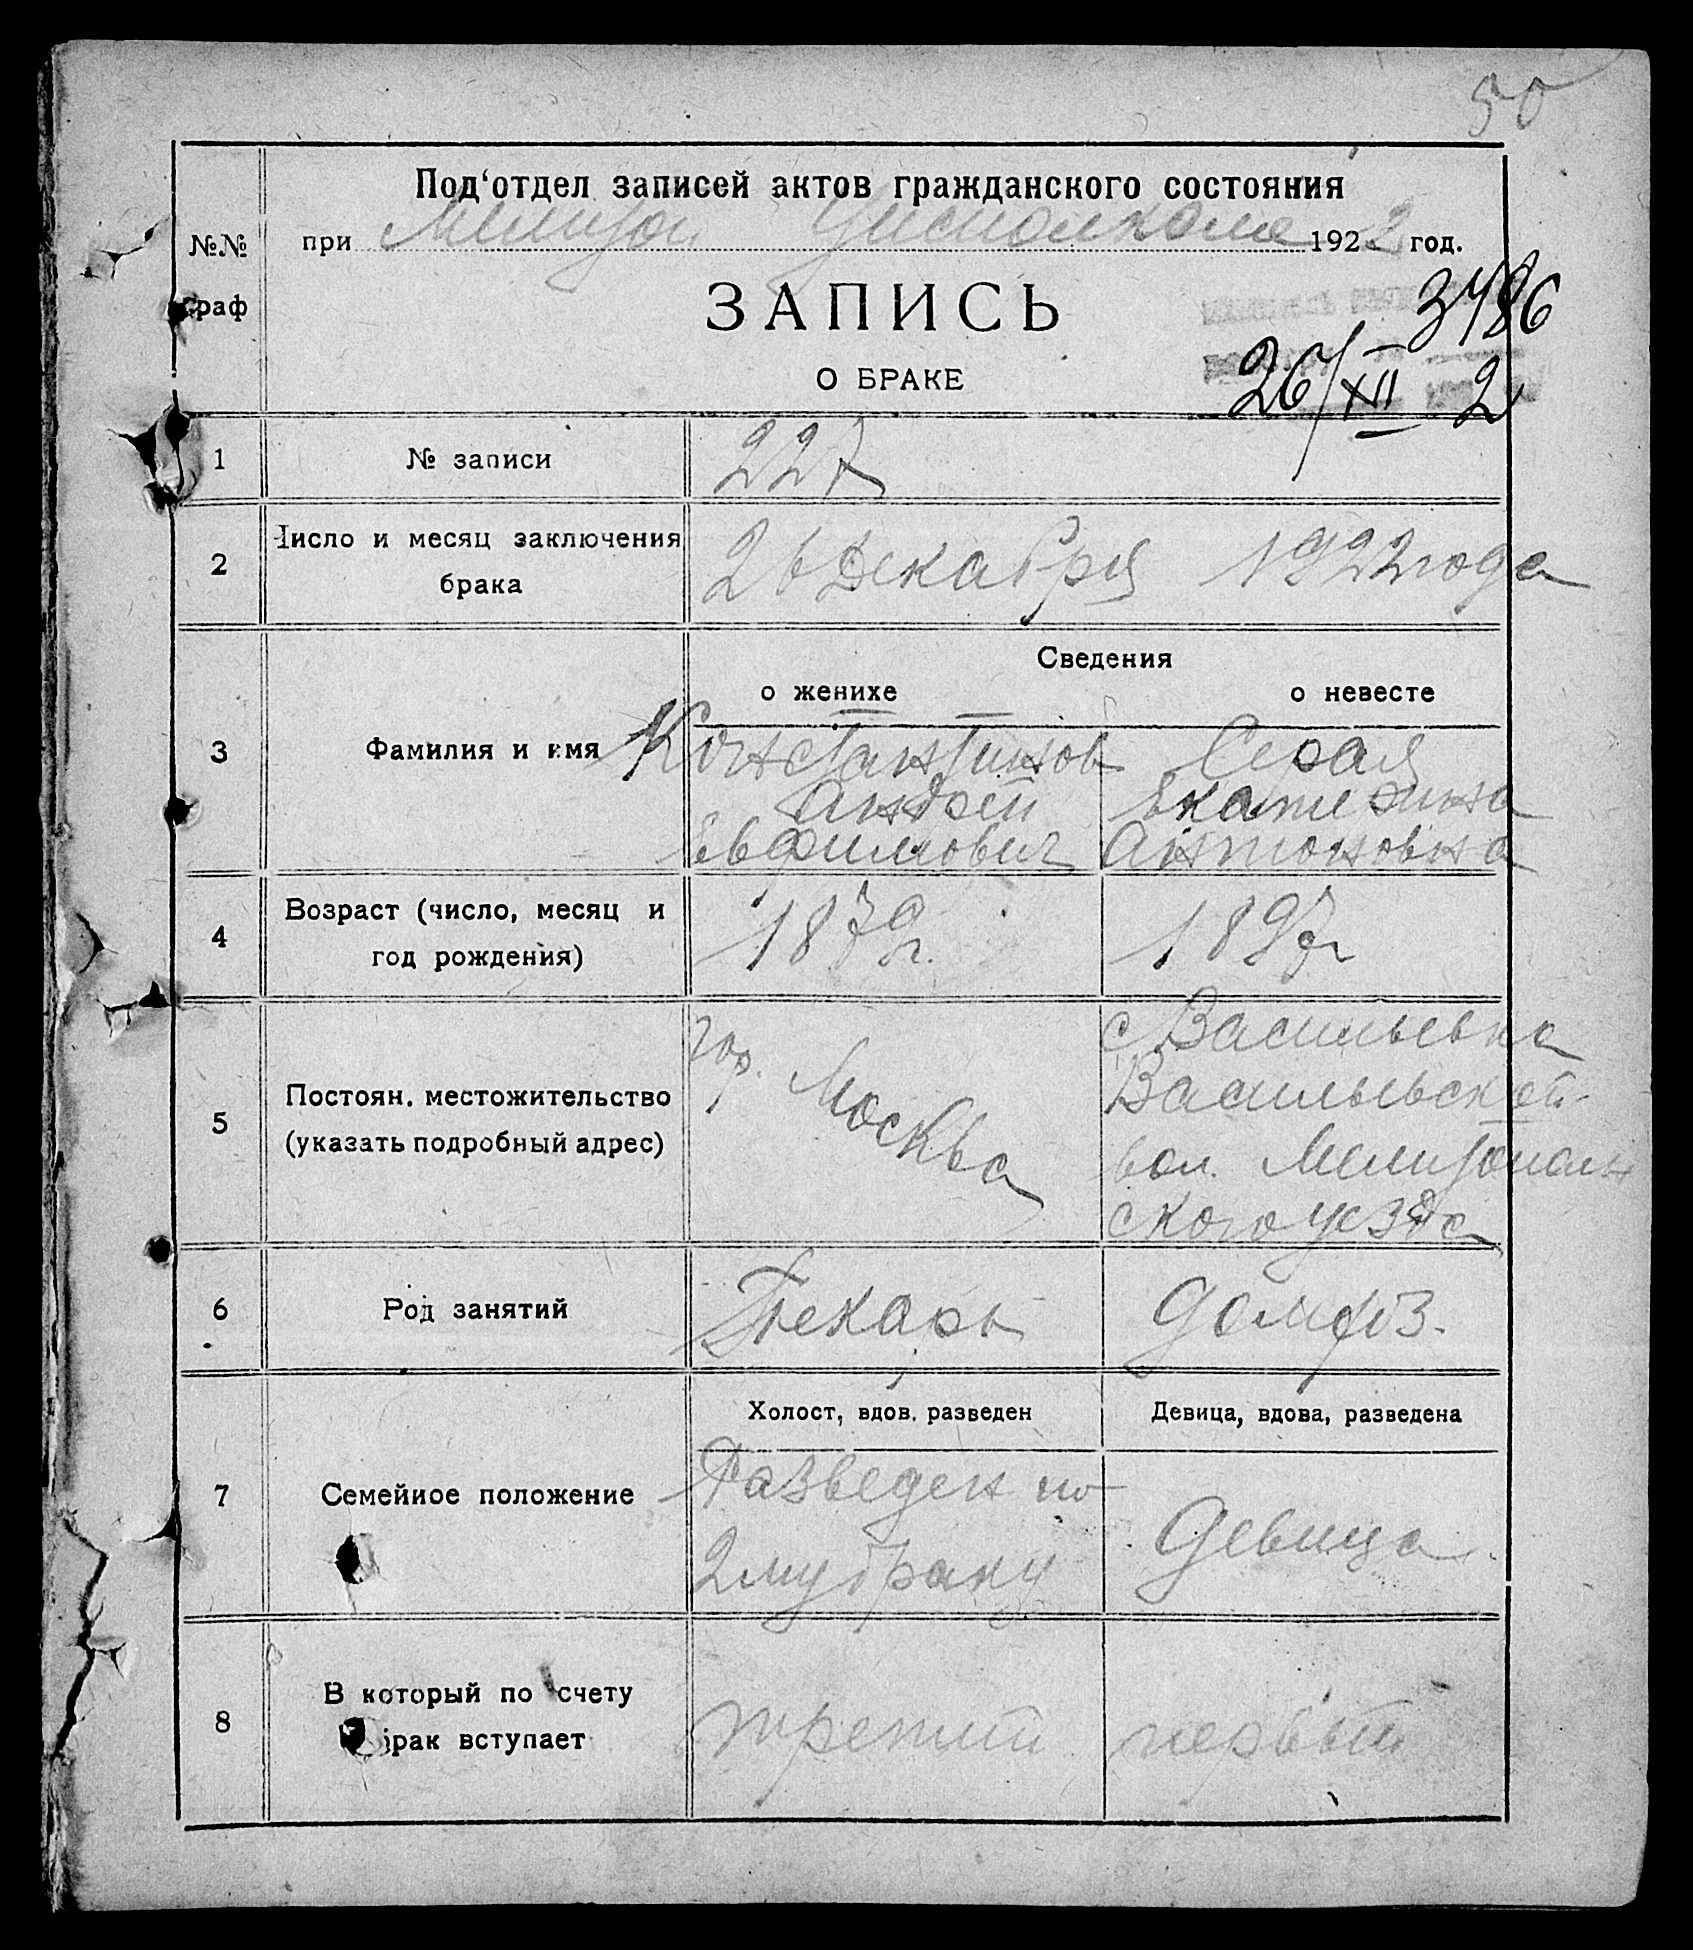 50
Под‘отдел записей актов гражданского состояния
№№ граф
при Мелитоп Уисполкоме 1922 год.
ЗАПИСЬ
3486
О БРАКЕ
26/XII 2
1 № записи 227
2 Число и месяц заключения 26 Декабря 1922 года
брака
Сведения
о женихе о невесте
3 Фамилия и имя Константинов Серая
Андрей Екатерина
Евфимович Антоновна
4 Возраст (число, месяц и 1879г. 1897г
год рождения)
5 Постоян. местожительство
(указать подробный адрес)
гор. Москва
с Васильевка
Васильевской
вол. Мелитополь
ского уезда
6 Род занятий Пекарь домохоз.
Холост, вдов. разведен Девица, вдова, разведена
7 Семейное положение Разведен по
2му браку Девица
8 В который по счету
брак вступает третий первый